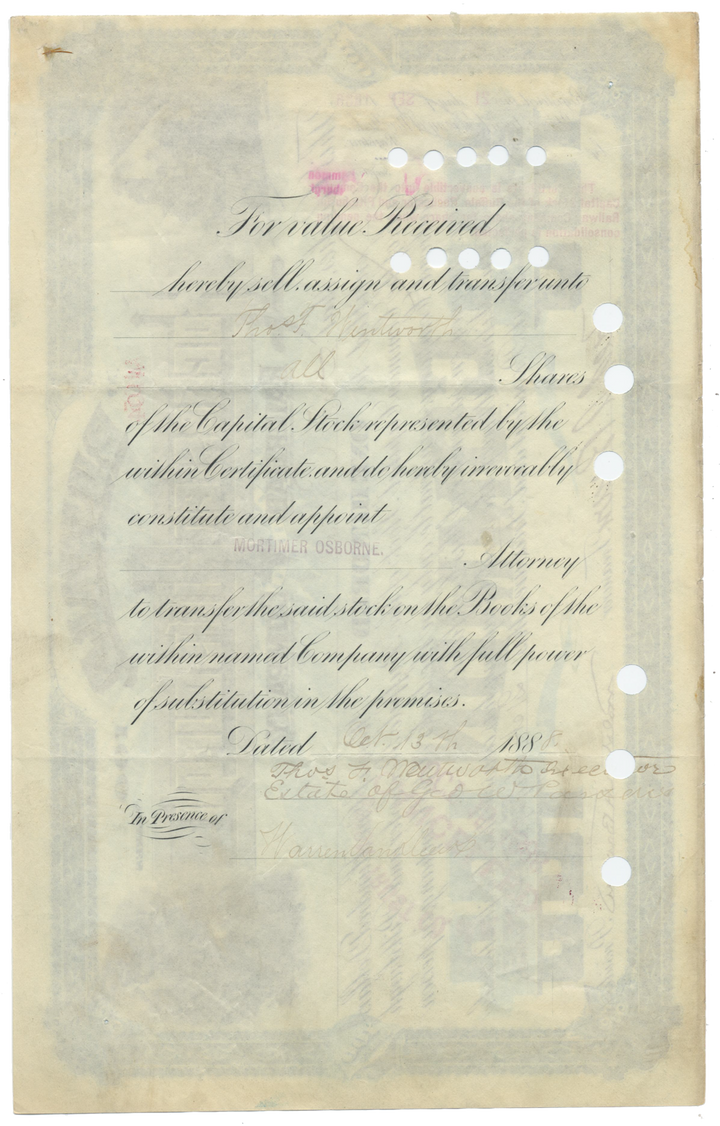 For value Received
hereby sell, assign and transfer unto
Thos F. Wentworth
all Shares
of the Capital Stock represented by the
within Certificate and do hereby irrevocably
constitute and appoint
MORTIMER OSBORNE.
Attorney
to transfer the said stock on the Books of the
within named Company with full power
of substitution in the premises.
Dated Oct. 13th 1888.
Thos F. Wentworth Executor
Estate of Geo W
In Presence of